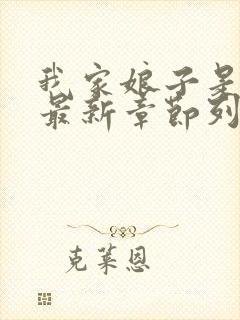 我家娘子是
最新章节列
克莱恩